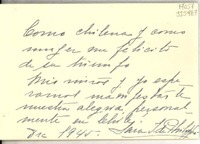 Como chilena y como
mujer me felicito
de su triunfo
Mis niños y yo espe
ramos manifestarte
nuestra alegría personal
mente en Chile.
Dic 1945. Sara